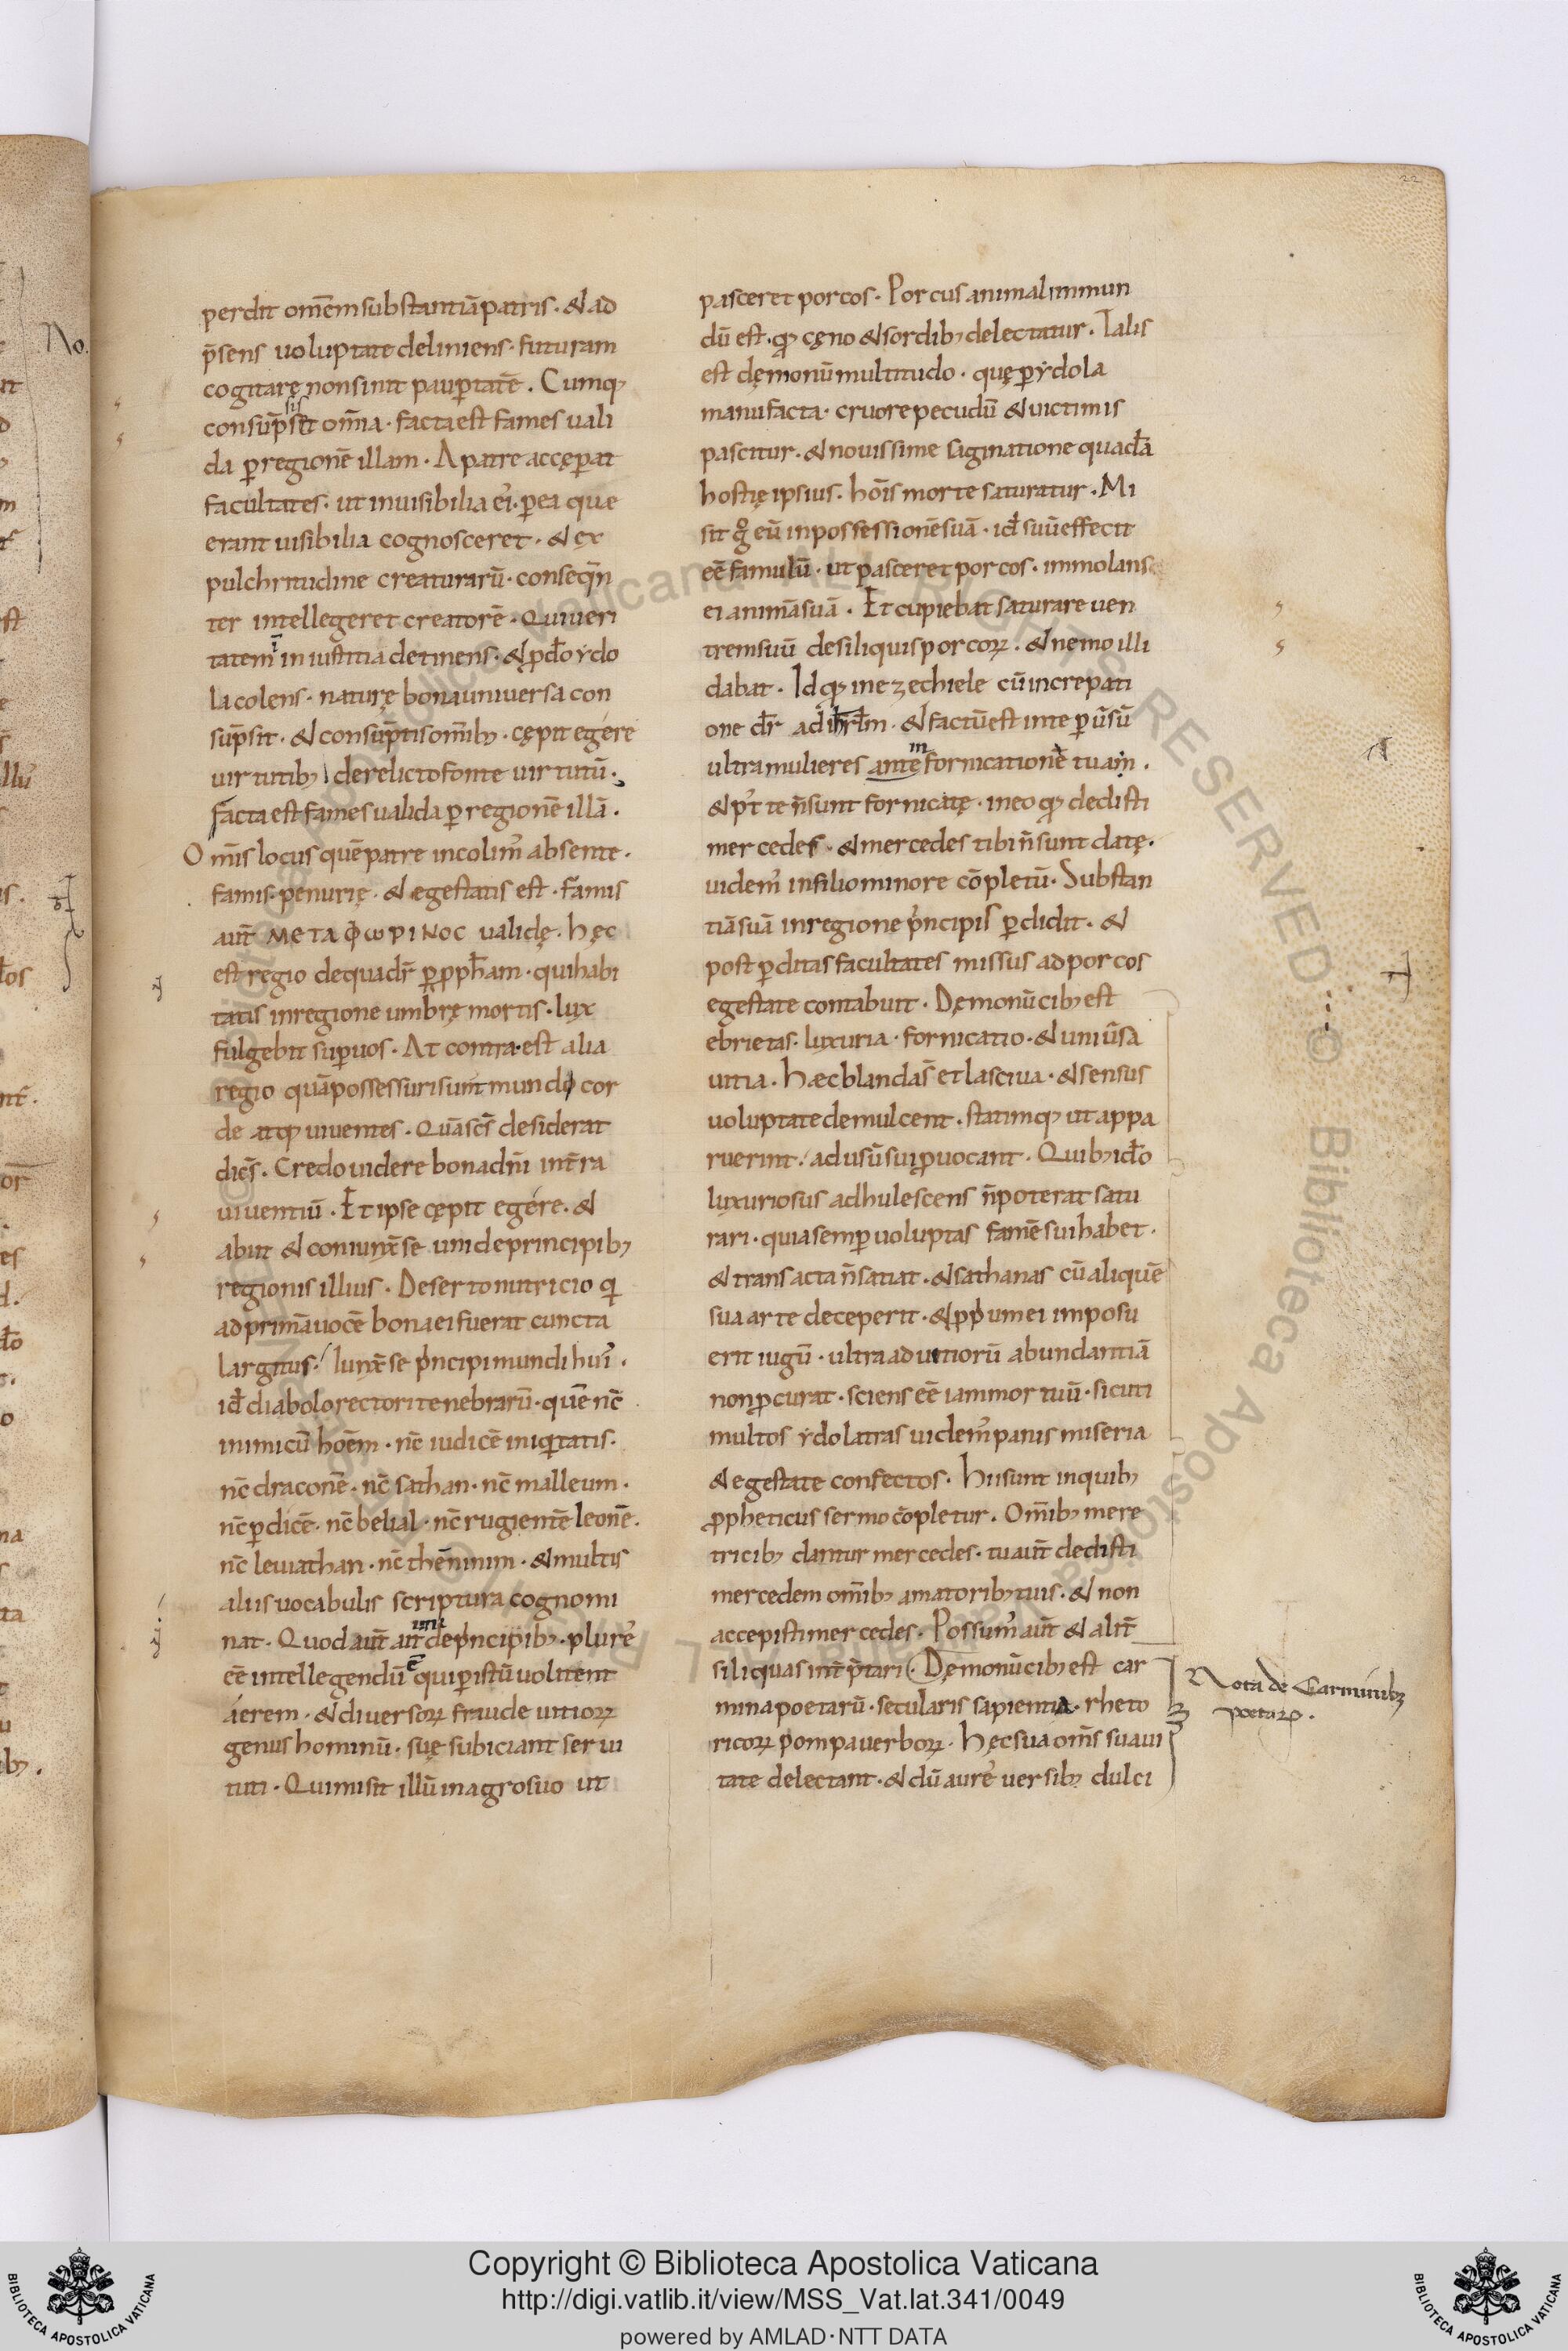 22
perdit om̅em substantiā patris · & ad
p̅sens uoluptate deliniens · futuram
cogitarę non sinit paup̱tatē . Cumq;
consūpsisset om̅ia · facta est fames uali
da p̱ regionē illam · A patre accęp̱at
facultates · ut inuisibilia ei᾿ · p̱ ea que
erant uisibilia cognosceret · & ex
pulchritudine creaturarū · conseq̅n
ter intellegeret creatorē · Qui ueri
tatem in iustitia detinens · & p̱ d̅o ydo
la colens · naturę bona uniuersa con
sūpsit · & consūptis om̅ib; · cępit egere
uirtutib; derelicto fonte uirtutū ·
facta est fames ualida p̱ regionē illā .
Om̅is locus quē patre incolim᾿ absente ·
famis · penurię · & egestatis est · famis
aut̅ ΜΕΤΑΦΩΡΙΝΟC ualidę · hęc
est regio de qua dr̅ p̱ pph̅am · qui habi
tatis in regione umbrę mortis · lux
fulgebit sup̱ uos · At contra · est alia
regio quā possessuri sunt mundo cor
de atq; uiuentes · Quā sc̅s desiderat
dic̅s . Credo uidere bona dn̅i in t̅ra
uiuentiū · Et ipse cępit egére · &
abiit & coniunx̅ se uni de principib;
regionis illius · Deserto nutricio q̇
ad primā uocē bona ei fuerat cuncta
largitus · iunx̅ se p̍ncipi mundi hui᾿ ·
id̅ diabolo rectori tenebrarū · quē nc̅
inimicū hoēm · nc̅ iudicē iniq̇tatis ·
nc̅ draconē · nc̅ sathan · nc̅ malleum ·
nc̅ p̱dicē · nc̅ belial · nc̅ rugientē leonē .
nc̅ leuiathan · nc̅ thēninim · & multis
aliis uocabulis scriptura cognomi
nat · Quod aut̅ ait uni de p̍ncipib; · plure᾿
eē intellegendū ē qui p̱ istū uolitent
áerem · & diuersoꝝ fraude uitioꝝ
genus hominū · suę subiciant serui
tuti · Qui misit illū in agro suo ut
pasceret porcos · Porcus animal inmun
dū est · q̇ cęno & sordib; delectatur . Talis
est dęmonū multitudo · quę p̱ ydola
manufacta · cruore pecudū & uictimis
pascitur · & nouissime saginatione quadā
hostię ipsius · hoīs morte saturatur . Mi
sit g̊ eū in possessionē suā · id̅ suū effecit
eē famulū · ut pasceret porcos · immolans
ei animā suā . Et cupiebat saturare uen
trem suū de siliquis porcoꝝ . & nemo illi
dabat · Id q; in ezechiele cū increpati
one dr̅ ad ihrl̅m · & factū est in te p̱ ūsū
ultra mulieres ante m fornicationē tuam .
& p̍t te n̅ sunt fornicatę · in eo q; dedisti
mercedes · & mercedes tibi n̅ sunt datę .
uidem᾿ in filio minore cōpletū · Substan
tiā suā in regione p̍ncipis p̱didit · &
post p̱ditas facultates missus ad porcos
egestate contabuit · Dęmonū cib; est
ebrietas · luxuria · fornicatio · & uniūsa
uitia · Hæc blanda s̅ et lasciua · & sensus
uoluptate demulcent · statimq; ut appa
ruerint · ad usū sui p̱uocant · Quib; id̅o
luxuriosus adhulescens n̅ poterat satu
rari · quia semp̱ uoluptas famē sui habet ·
& transacta n̅ satiat · & sathanas cū aliquē
sua arte deceperit · & pp̍um ei imposu
erit iugū · ultra ad uitiorū abundantiā
non p̱curat · sciens eē iam mortuū · sicuti
multos ydolatras uidem᾿ panis miseria
& egestate confectos · Hi sunt in quib;
p̱pheticus sermo cōpletur . Om̅ib; mere
tricib; dantur mercedes · tu aut̅ dedisti
mercedem om̅ib; amatorib; tuis · & non
accepisti mercedes · Possum᾿ aut̅ & alit̅
siliquas int̅p̅tari · Dęmonū cib; est car
mina poetarū · secularis sapientia · rheto
ricoꝝ pompa uerboꝝ · Hęc sua om̅s suaui
tate delectant · & dū aure᾿ uersib; dulci
Nota de Carminibꝫ
poetaꝝ .
Copyright © Biblioteca Apostolica Vaticana
http://digi.vatlib.it/view/MSS_Vat.lat.341/0049
powered by AMLAD·NTT DATA
BIBLIOTECA APOSTOLICA VATICANA
BIBLIOTECA APOSTOLICA VATICANA